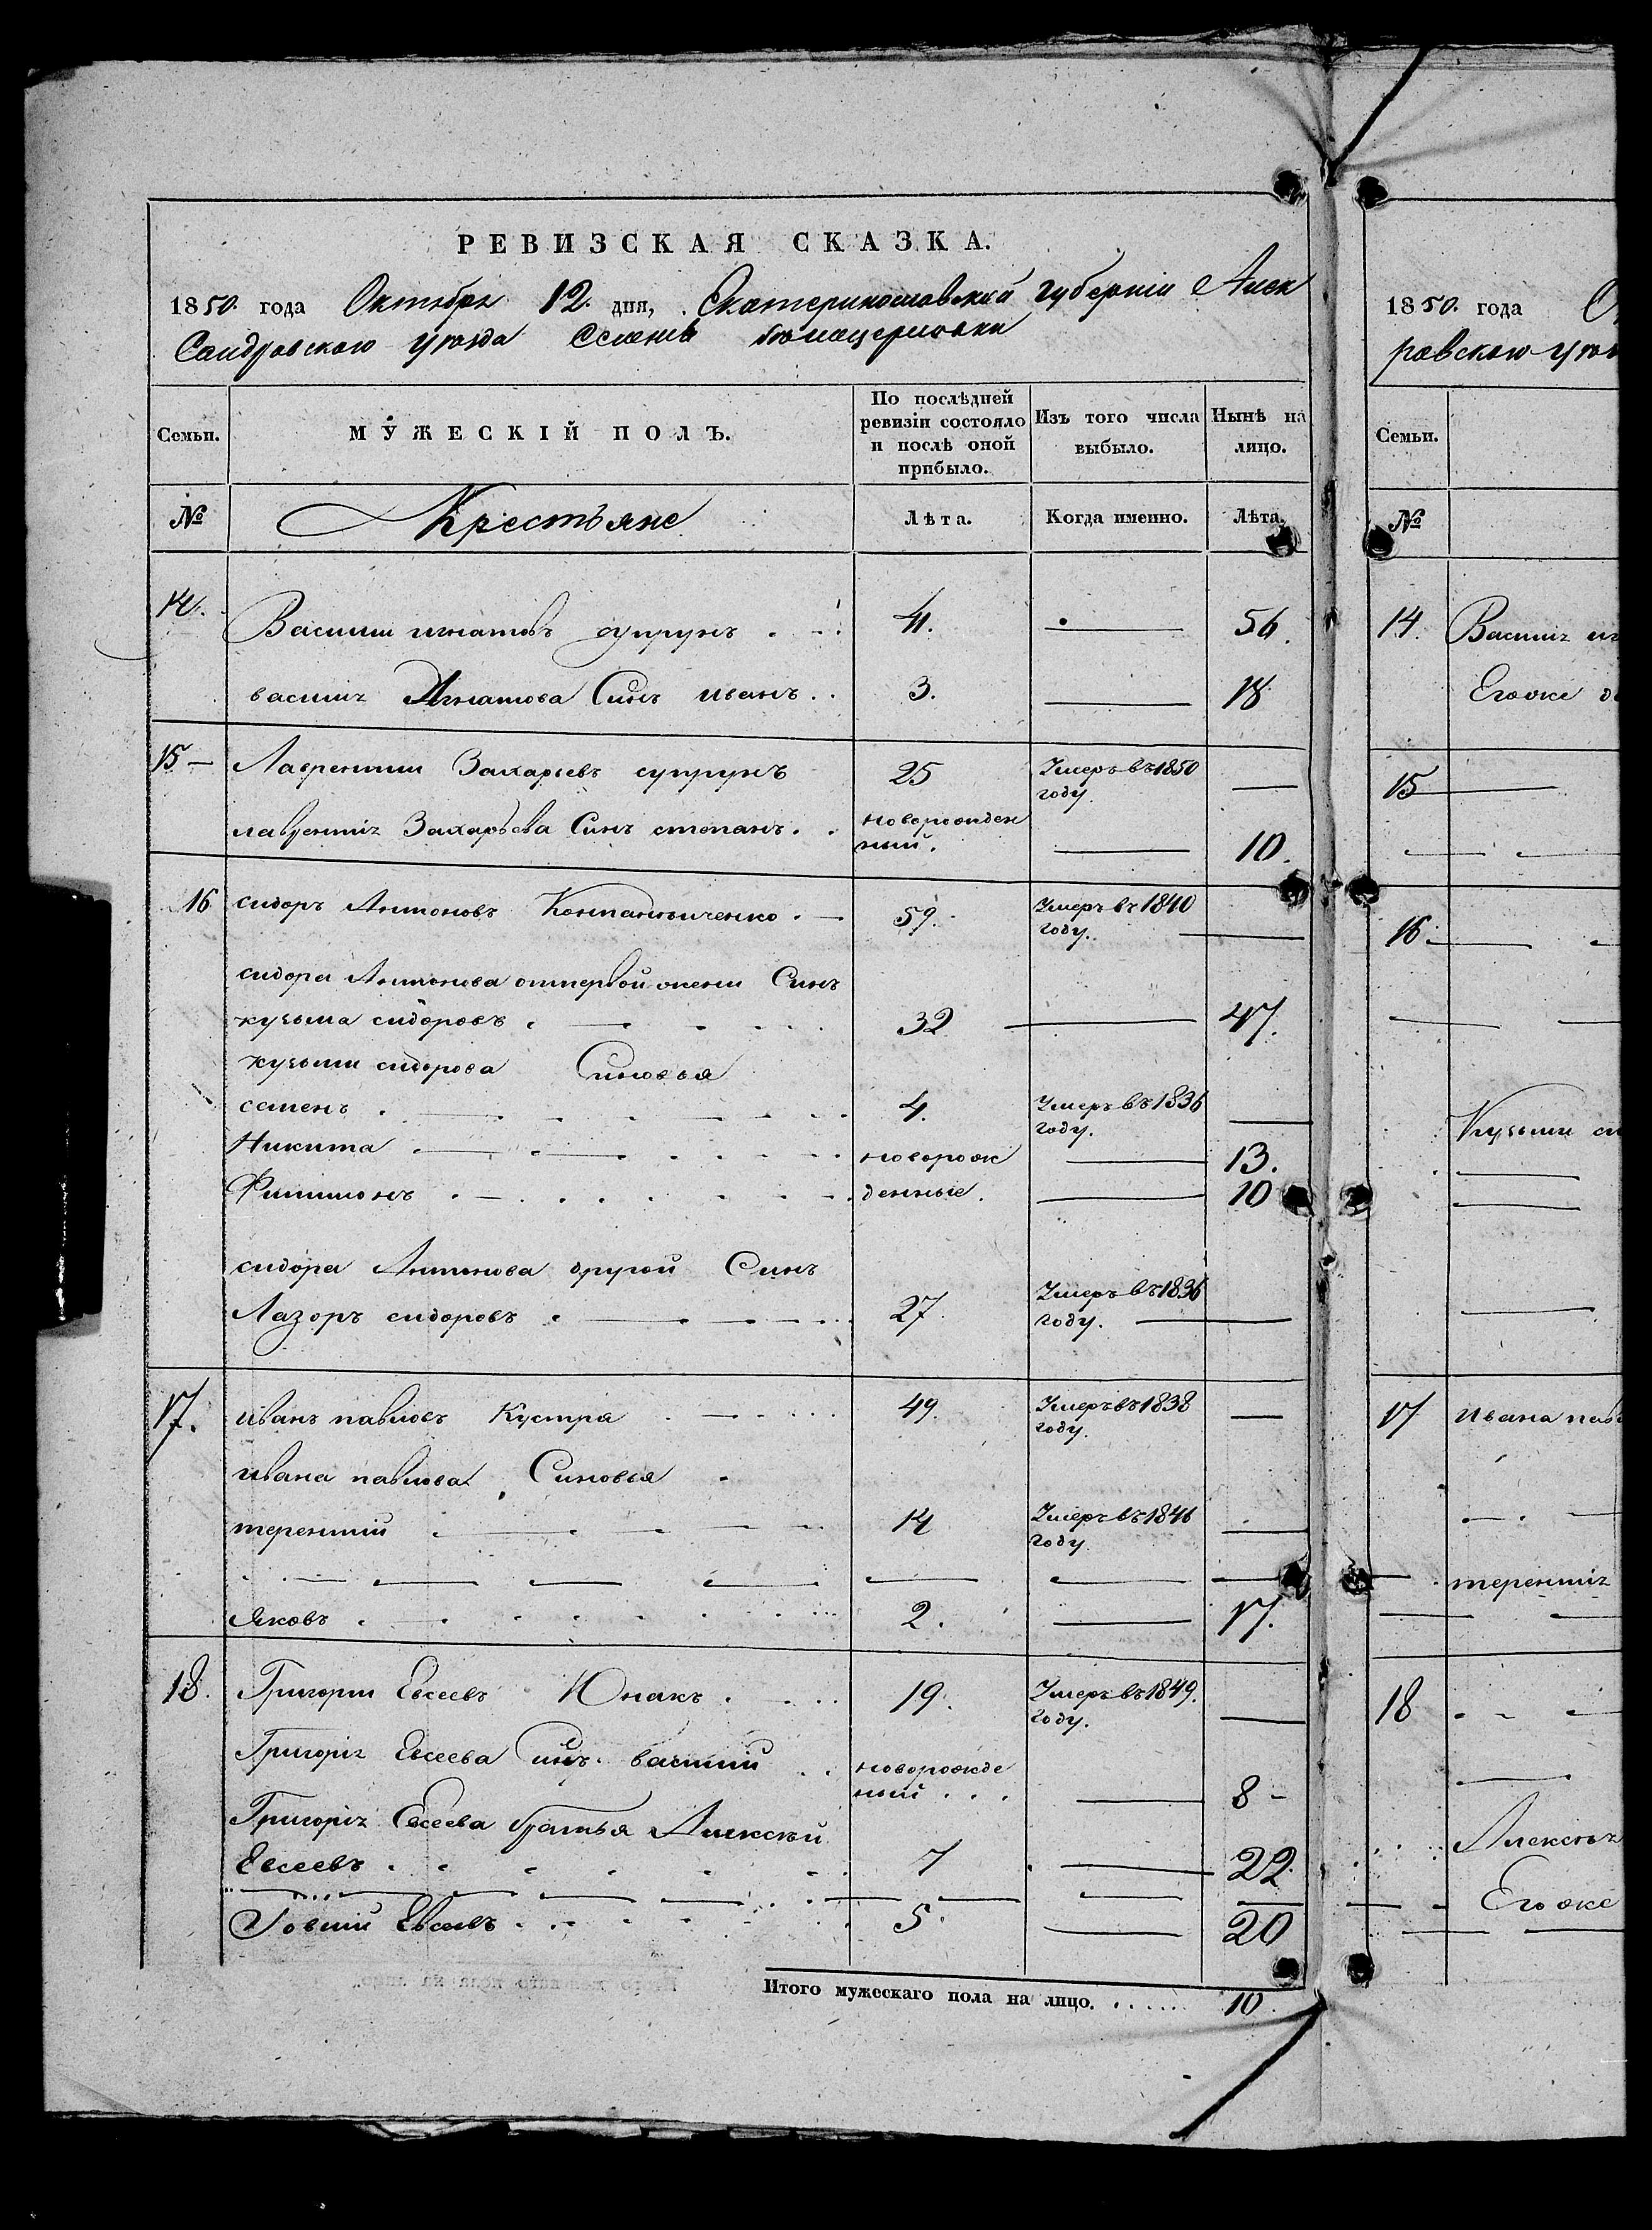 РЕВИЗСКАЯ СКАЗКА.
1850. года Октября 12. дня, Екатеринославской губерніи Алек
Сандровского уезда
Семьи.
МУЖЕСКІЙ ПОЛЪ.
По послѣдней ревизіи состояло и послѣ оной прибыло.
Изъ того числа выбыло.
Нынѣ на лицо.
№
Крестьяне
Лѣта.
Когда именно.
Лѣта.
14. Василии игнатовъ супрунъ 41. — 56.
василія Игнатова Синъ иванъ 3. — 18
15 — Лаврентии Захарьевъ супрунъ 25 Умеръ въ 1850 году. —
лаврентія Захарьева Синъ степанъ новорожден ный. — 10.
16 сидоръ Антоновъ 59. Умеръ въ 1840 году. —
сидора Антонова отпервой жени Синъ
кузьма сидоровъ 32 — 47.
кузьми сидорова Синовья
семенъ 4. Умеръ въ 1836 году. —
Никита новорож — 13.
Филимонъ денные. — 10
сидора Антонова другой Синъ
Лазоръ сидоровъ 27. Умеръ въ 1836 году. —
17. иванъ павловъ Кустря 49. Умеръ въ 1838 году. —
ивана павлова Синовья
терентій 14 Умеръ въ 1846 году —
Яковъ 2. — 17.
18. Григории Евсеевъ Юнакъ 19. Умеръ въ 1849. году. —
Григорія Евсеева Синъ василій новорожде ный — 8 —
Григорія Евсеева братья Алексѣй
Евсеевъ 7 — 22.
Евсеевъ 5. — 20
Итого мужескаго пола на лицо. 10.
1850. года
ровского
Семьи.
№
14. Василія
Егоже
15
16.
Кузьми
17 Ивана
терентія
18
Алексѣя
Егоже